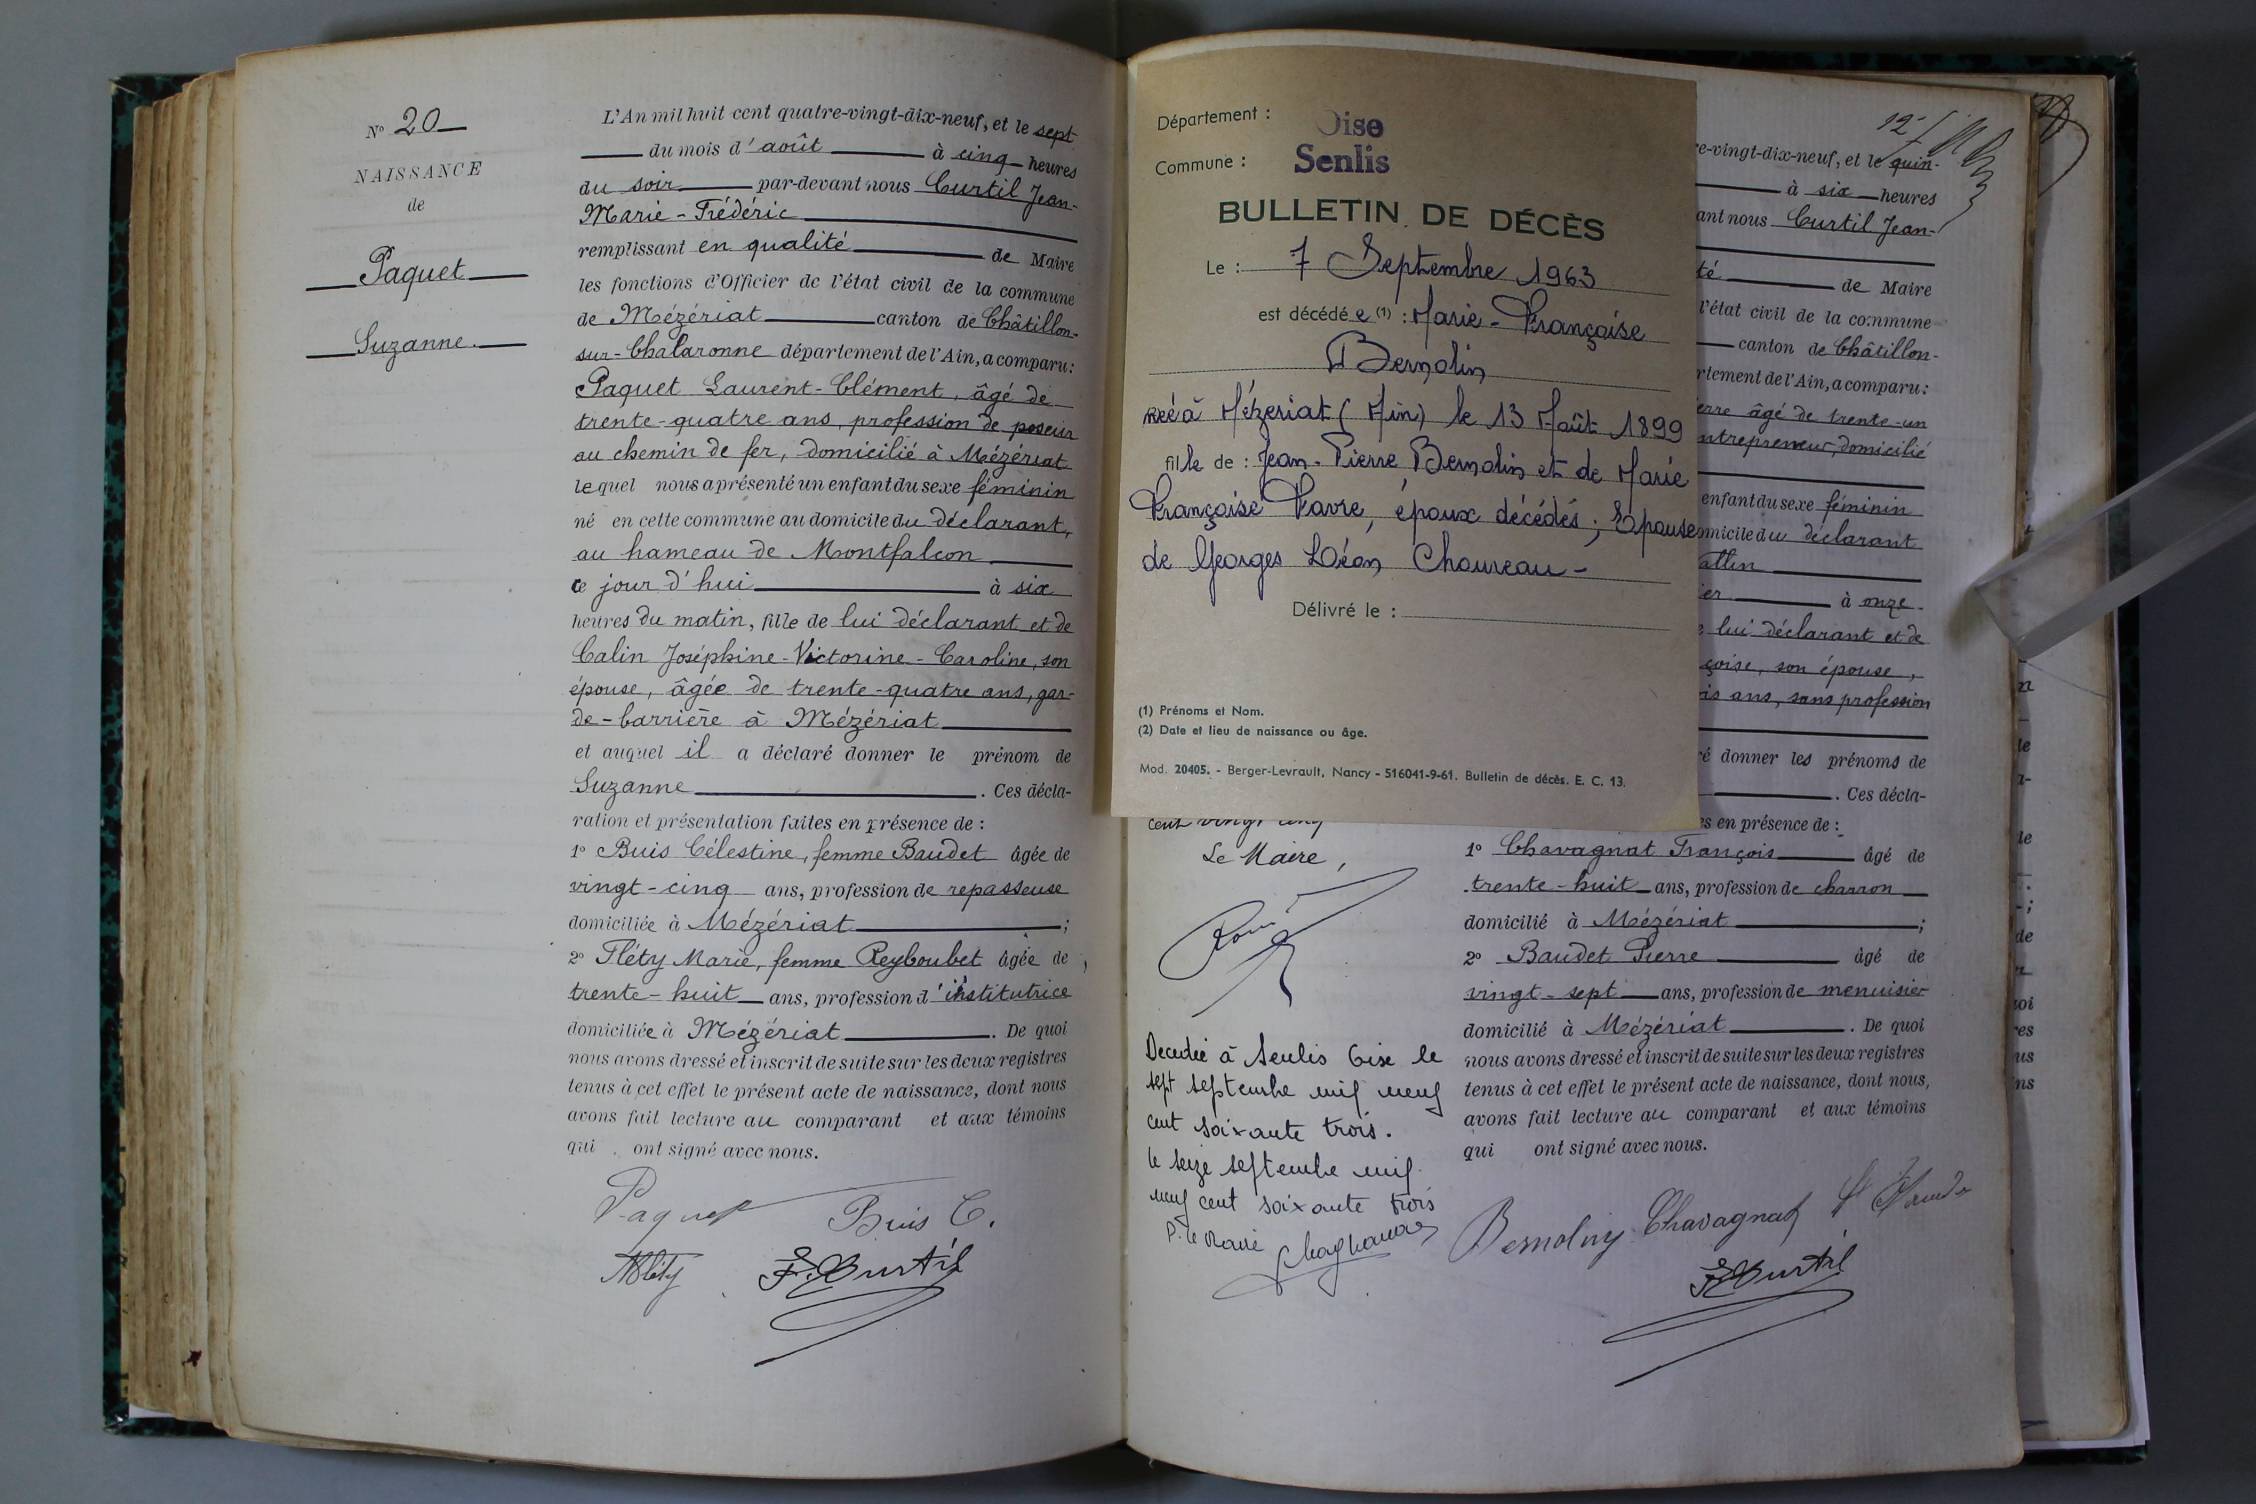 N° 20
NAISSANCE
de
Paquet
Suzanne.
L'An mil huit cent quatre-vingt-dix-neuf, et le sept
du mois d'août à cinq heures
du soir par-devant nous Curtil Jean-
Marie-Frédéric
remplissant en qualité de Maire
les fonctions d'Officier de l'état civil de la commune
de Mézériat canton de Châtillon-
sur-Chalaronne département de l'Ain, a comparu:
Paquet Laurent-Clément, âgé de
trente-quatre ans, profession de poseur
au chemin de fer, domicilié à Mézériat
lequel nous a présenté un enfant du sexe féminin
né en cette commune au domicile du déclarant,
au hameau de Montfalcon
ce jour d'hui à six
heures du matin, fille de lui déclarant et de
Calin Joséphine-Victorine-Caroline, son
épouse, âgée de trente-quatre ans, gar-
de-barrière à Mézériat
et auquel il a déclaré donner le prénom de
Suzanne. Ces décla-
ration et présentation faites en présence de :
1° Buis Célestine, femme Baudet âgée de
vingt-cinq ans, profession de repasseuse
domiciliée à Mézériat ;
2° Fléty Marie, femme Reyboubet âgée de
trente-huit ans, profession d'institutrice
domiciliée à Mézériat. De quoi
nous avons dressé et inscrit de suite sur les deux registres
tenus à cet effet le présent acte de naissance, dont nous
avons fait lecture au comparant et aux témoins
qui ont signé avec nous.
Paquet Buis C.
MFléty F. Curtil
Département : Oise
Commune : Senlis
BULLETIN DE DÉCÈS
Le : 7 Septembre 1963
est décédée (1) : Marie-Françoise
Bernolin
née à Mézeriat (Ain) le 13 Août 1899
fille de : Jean-Pierre Bernolin et de Marie
Françoise Favre, époux décédés ; Epouse
de Georges Léon Chauveau -
Délivré le :
(1) Prénoms et Nom.
(2) Date et lieu de naissance ou âge.
Mod. 20405. - Berger-Levrault, Nancy - 516041-9-61. Bulletin de décès. E. C. 13.
cent vingt cinq
Le Maire,
Decedée à Senlis Oise le
sept septembre mil neuf
cent soixante trois.
le seize septembre mil
neuf cent soixante trois
P. le Maire
12
e-vingt-dix-neuf, et le quin-
à six heures
ant nous Curtil Jean-
té de Maire
l'état civil de la commune
canton de Châtillon-
rtement de l'Ain, a comparu:
erre âgé de trente-un
ntrepreneur, domicilié
enfant du sexe féminin
omicile du déclarant
attin
er à onze
lui déclarant et de
çoise, son épouse,
is ans, sans profession
ré donner les prénoms de
. Ces décla-
es en présence de :
1° Chavagnat François âgé de
trente-huit ans, profession de charron
domicilié à Mézériat ;
2° Baudet Pierre âgé de
vingt-sept ans, profession de menuisier
domicilié à Mézériat. De quoi
nous avons dressé et inscrit de suite sur les deux registres
tenus à cet effet le présent acte de naissance, dont nous,
avons fait lecture au comparant et aux témoins
qui ont signé avec nous.
Bernolin Chavagnat
F. Curtil